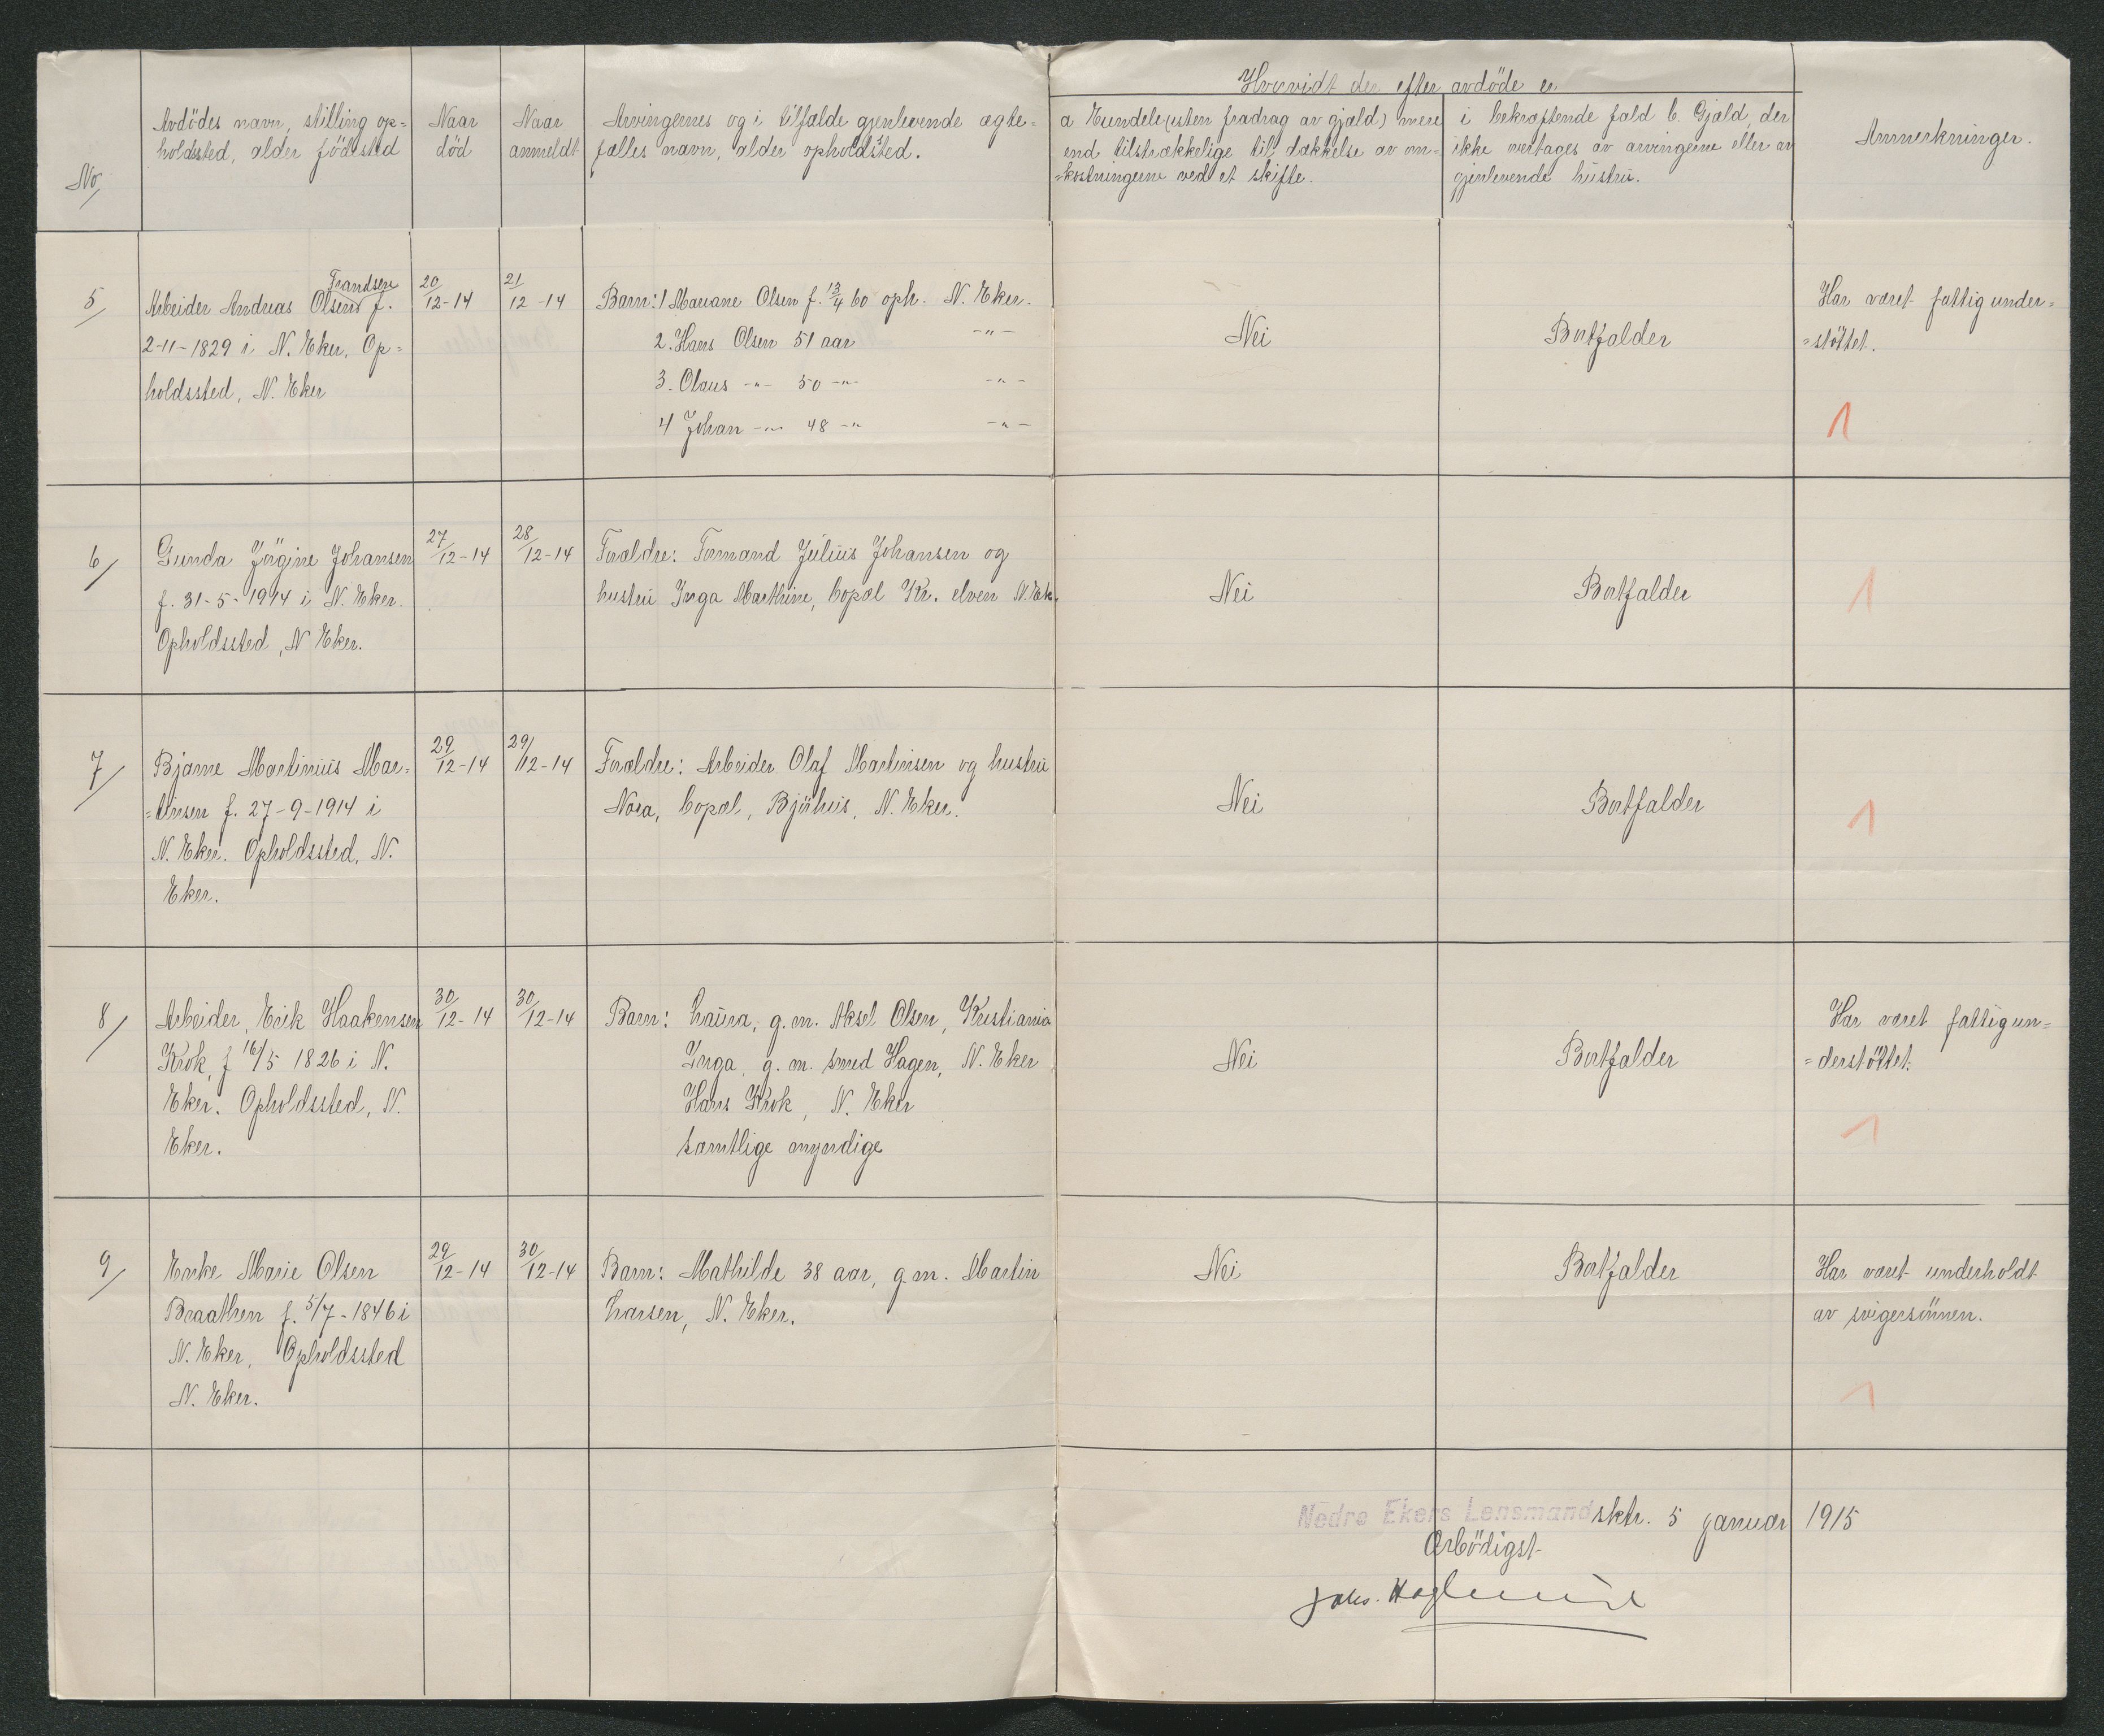 Hvorvidt der efter avdöde er
No
Avdödes navn, stilling op=
holdssted, alder födested
Naar
död
Naar
anmeldt
Arvingernes og i tilfælde gjenlevende ægte=
fælles navn, alder opholdsted.
a Eiendele (uten fradrag av gjæld) mere
end tilstrækkelige til dækkelse av om=
=kostningerne ved et skifte.
i bekræftende fald b. Gjæld, der
ikke overtages av arvingerne eller av
gjenlevende hustru.
Anmerkninger.
5/
Frandsen
Arbeider Andreas Olsen f.
2-11-1829 i N. Eker. Op=
holdssted, N. Eker
20/12-14
21/12-14
Barn: 1 Mariane Olsen f. 13/4 60 oph. N. Eker.
2. Hans Olsen 51 aar -"-
3. Olaus -"- 50 -"- -"-
4 Johan -"- 48 -"- -"-
Nei
Bortfalder
Har været fattigunder=
=støttet.
1
6/
Gunda Jörgine Johansen
f. 31-5-1914 i N. Eker.
Opholdssted, N Eker.
27/12-14
28/12-14
Forældre: Formand Julius Johansen og
hustru Inga Marthine, bopæl Kr. elven N. Ek.
Nei
Bortfalder
1
7/
Bjarne Martinius Mar=
=tinsen f. 27-9-1914 i
N. Eker. Opholdssted, N.
Eker.
29/12-14
29/12-14
Forældre: Arbeider Olaf Martinsen og hustru
Nora, bopæl, Björhus, N. Eker.
Nei
Bortfalder
1
8/
Arbeider, Erik Haakensen
Krok, f 16/5 1826 i N.
Eker. Opholdssted, N.
Eker.
30/12-14
30/12-14
Barn: Laura, g.m. Aksel Olsen, Kristiania
Inga, g.m. smed Hagen, N. Eker
Hans Krok, N. Eker
samtlige myndige
Nei
Bortfalder
Har været fattigun=
=derstöttet.
1
9/
Enke Marie Olsen
Braathen f. 5/7-1846 i
N. Eker, Opholdssted
N. Eker.
29/12-14
30/12-14
Barn: Mathilde 38 aar, g.m. Martin
Larsen, N. Eker.
Nei
Bortfalder
Har været underholdt
av svigersönnen.
1
Nedre Ekers Lensmandsktr. 5 januar 1915
Ærbödigst